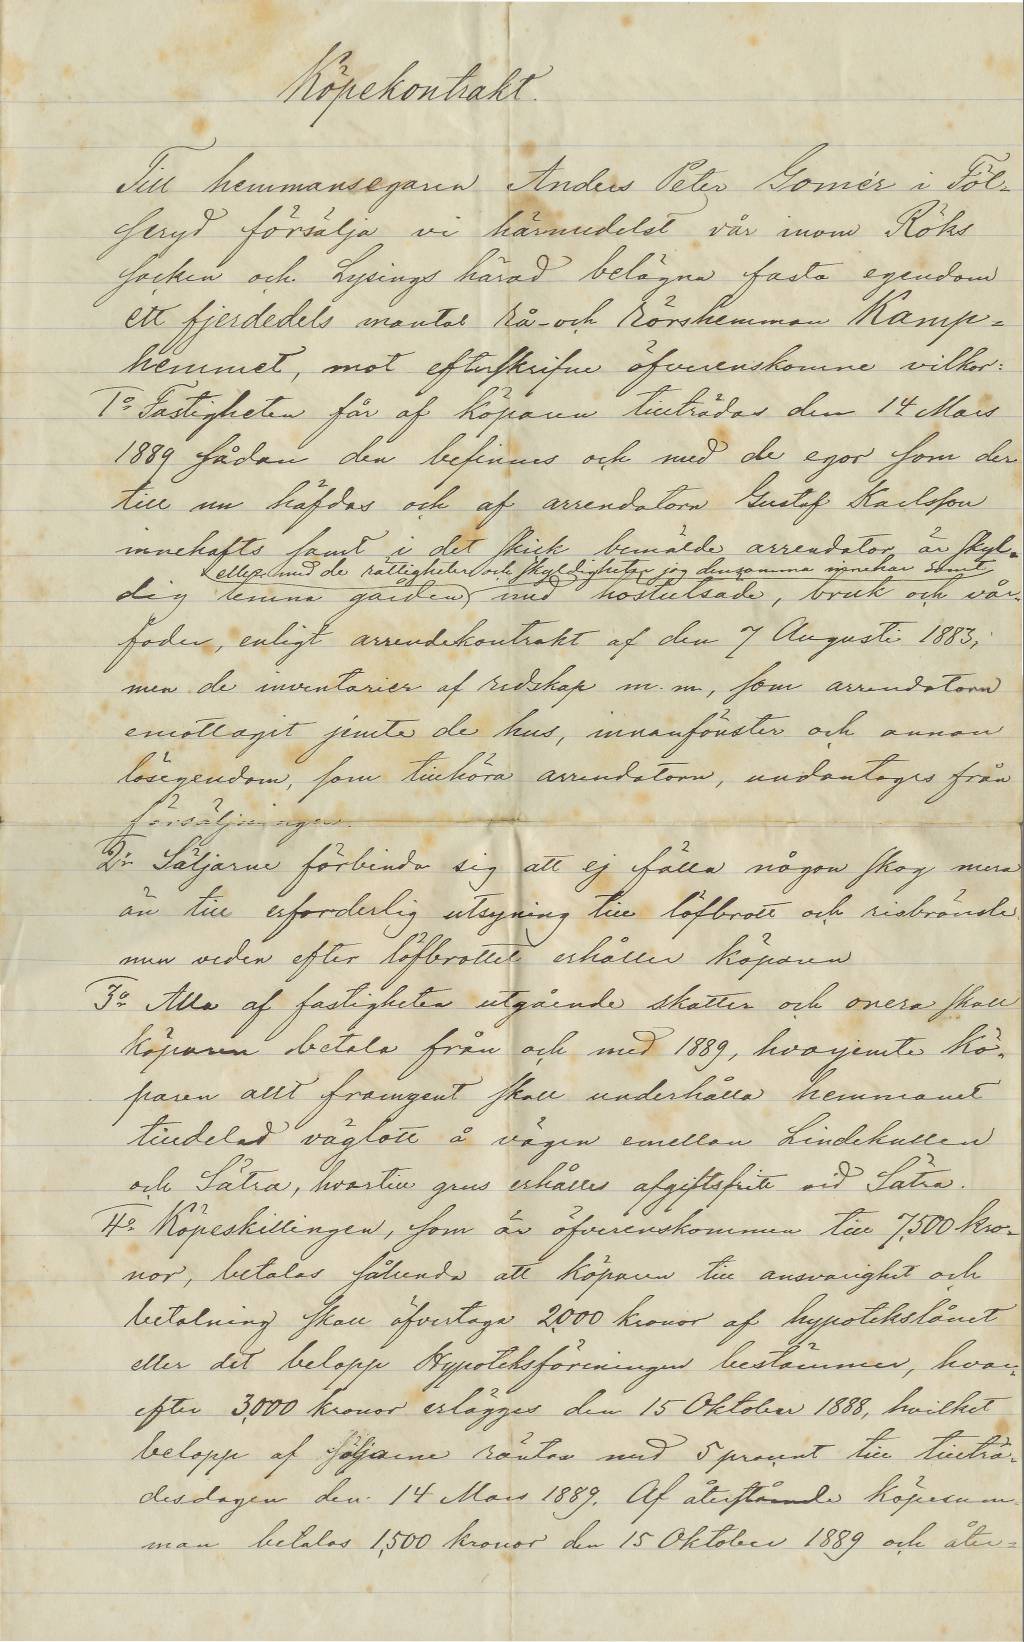 Köpekontrakt.
Till hemmansegaren Anders Peter Gomér i Föl-
seryd försälja vi härmedelst vår inom Röks
socken och Lysings härad belägna fasta egendom
ett fjerdedels mantal rå- och rörshemman Kamp-
hemmet, mot efterskrifne öfverenskomne vilkor:
1o Fastigheten får af köparen tillträdas den 14 Mars
1889 sådan den befinnes och med de egor som der
till nu häfdas och af arrendatorn Gustaf Karlsson
innehafts samt i det skick bemälde arrendator är skyl-
eller med de rättigheter och skyldigheter jag densamma innehar samt
dig lemna gården med höstutsäde, bruk och vår-
foder, enligt arrendekontrakt af den 7 Augusti 1883,
men de inventarier af redskap m.m., som arrendatorn
emottagit jemte de hus, innanfönster och annan
lösegendom, som tillhöra arrendatorn, undantages från
försäljningen.
2o Säljarne förbinda sig att ej fälla någon skog mera
än till erforderlig utsyning till löfbrott och risbränsle
men veden efter löfbrottet erhåller köparen
3o Alla af fastigheten utgående skatter och onera skall
köparen betala från och med 1889, hvarjemte kö-
paren allt framgent skall underhålla hemmanet
tilldelad väglott å vägen emellan Lindekullen
och Sätra, hvartill grus erhålles afgiftsfritt vid Sätra.
4o Köpeskillingen, som är öfverenskommen till 7,500 kro-
nor, betalas sålunda att köparen till ansvarighet och
betalning skall öfvertaga 2,000 kronor af hypotekslånet
eller det belopp Hypoteksföreningen bestämmer, hvar-
efter 3,000 kronor erlägges den 15 Oktober 1888, hvilket
belopp af säljarne räntas med 5 procent till tillträ-
desdagen den 14 Mars 1889. Af återstående köpesum-
man betalas 1,500 kronor den 15 Oktober 1889 och åter-